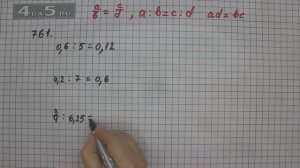 4 GDZ
a/b = c/d , a : b = c : d ad = bc
761.
0,6 : 5 = 0,12
4,2 : 7 = 0,6
3/4 : 6,25 =